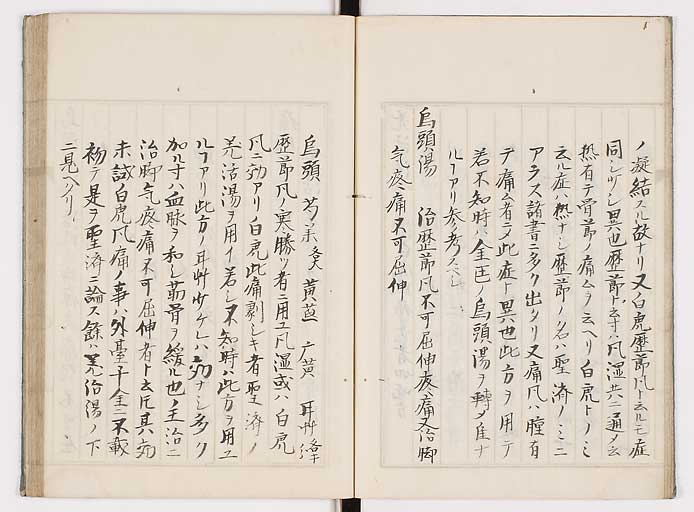 ノ凝結スル故ナリ又白虎歴節風ト云ルモ症
同シケレハ異也歴節ト云寸ハ風湿共ニ通メ云
熱有テ骨節ノ痛ムヲ云ヘリ白虎トノミ
云ル症ハ熱ナシ歴節ノ名ハ聖済ノミニ
アラス諸書ニ多ク出タリ又痛風ハ腫有
テ痛ム者ニメ此症ト異也此方ヲ用テ
若不知時ハ金匱ノ烏頭湯ヲ轉メ
ルヿアリ参考スヘシ
烏頭湯 治歴節風不可屈伸疼痛又治脚
気疼痛不可屈伸
烏頭 芍薬 黄茋 麻黄
歴節風ノ寒勝ツ者ニ用ユ風湿或ハ白虎
風ニ効アリ白虎此痛劇シキ者聖済ノ
羌活湯ヲ用イ若シ不知時ハ此方ヲ用ユ
ルヿアリ此方ノ甘草少ケレハ効ナシ多ク
加ル寸ハ血脉ヲ和シ筋骨ヲ緩ル也ノ主治ニ
治脚气疼痛不可屈伸者ト云 其効
未試白虎風痛ノ事ハ外臺千金ニ不載
初テ是ヲ聖済ニ論ス餘ハ羌活湯ノ下
ニ見ヘタリ